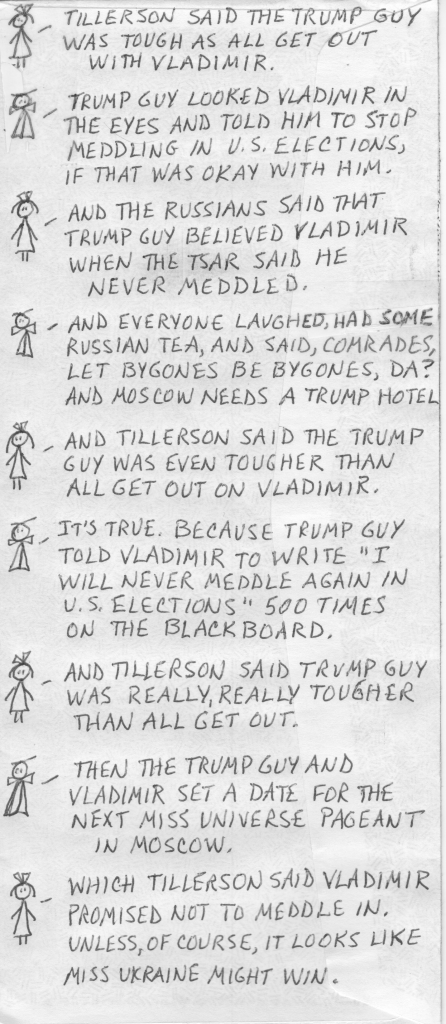 TILLERSON SAID THE TRUMP GUY
WAS TOUGH AS ALL GET OUT
WITH VLADIMIR.
TRUMP GUY LOOKED VLADIMIR IN
THE EYES AND TOLD HIM TO STOP
MEDDLING IN U.S. ELECTIONS,
IF THAT WAS OKAY WITH HIM.
AND THE RUSSIANS SAID THAT
TRUMP GUY BELIEVED VLADIMIR
WHEN THE TSAR SAID HE
NEVER MEDDLED.
AND EVERYONE LAUGHED, HAD SOME
RUSSIAN TEA, AND SAID, COMRADES,
LET BYGONES BE BYGONES, DA?
AND MOSCOW NEEDS A TRUMP HOTEL
AND TILLERSON SAID THE TRUMP
GUY WAS EVEN TOUGHER THAN
ALL GET OUT ON VLADIMIR.
IT'S TRUE. BECAUSE TRUMP GUY
TOLD VLADIMIR TO WRITE "I
WILL NEVER MEDDLE AGAIN IN
U.S. ELECTIONS" 500 TIMES
ON THE BLACKBOARD.
AND TILLERSON SAID TRUMP GUY
WAS REALLY, REALLY TOUGHER
THAN ALL GET OUT.
THEN THE TRUMP GUY AND
VLADIMIR SET A DATE FOR THE
NEXT MISS UNIVERSE PAGEANT
IN MOSCOW.
WHICH TILLERSON SAID VLADIMIR
PROMISED NOT TO MEDDLE IN.
UNLESS, OF COURSE, IT LOOKS LIKE
MISS UKRAINE MIGHT WIN.